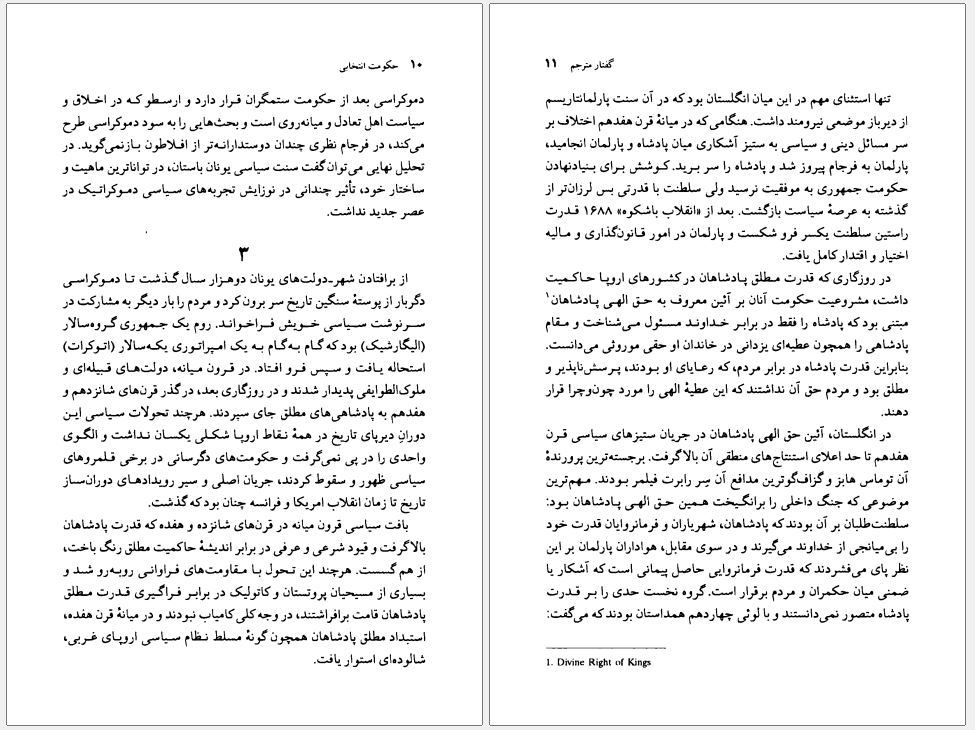 ۱۰ حکومت انتخابی
دموکراسی بعد از حکومت ستمگران قرار دارد و ارسطو که در اخلاق و
سیاست اهل تعادل و میانه‌روی است و بحث‌هایی را به سود دموکراسی طرح
می‌کند، در فرجام نظری چندان دوستدارانه‌تر از افلاطون بازنمی‌گوید. در
تحلیل نهایی می‌توان گفت سنت سیاسی یونان باستان، در تواناترین ماهیت و
ساختار خود، تأثیر چندانی در نوزایش تجربه‌های سیاسی دموکراتیک در
عصر جدید نداشت.
۳
از برافتادن شهر-دولت‌های یونان دوهزار سال گذشت تا دموکراسی
دگربار از پوستهٔ سنگین تاریخ سر برون کرد و مردم را بار دیگر به مشارکت در
سرنوشت سیاسی خویش فراخواند. روم یک جمهوری گروه‌سالار
(الیگارشیک) بود که گام به‌گام به یک امپراتوری یکه‌سالار (اتوکرات)
استحاله یافت و سپس فرو افتاد. در قرون میانه، دولت‌های قبیله‌ای و
ملوک‌الطوایفی پدیدار شدند و در روزگاری بعد، درگذر قرن‌های شانزدهم و
هفدهم به پادشاهی‌های مطلق جای سپردند. هرچند تحولات سیاسی این
دورانِ دیرپای تاریخ در همهٔ نقاط اروپا شکلی یکسان نداشت و الگوی
واحدی را در پی نمی‌گرفت و حکومت‌های دگرسانی در برخی قلمروهای
سیاسی ظهور و سقوط کردند، جریان اصلی و سیر رویدادهای دوران‌ساز
تاریخ تا زمان انقلاب امریکا و فرانسه چنان بود که گذشت.
بافت سیاسی قرون میانه در قرن‌های شانزده و هفده که قدرت پادشاهان
بالا گرفت و قیود شرعی و عرفی در برابر اندیشهٔ حاکمیت مطلق رنگ باخت،
از هم گسست. هرچند این تحول با مقاومت‌های فراوانی روبه‌رو شد و
بسیاری از مسیحیان پروتستان و کاتولیک در برابر فراگیری قدرت مطلق
پادشاهان قامت برافراشتند، در وجه کلی کامیاب نبودند و در میانهٔ قرن هفده،
استبداد مطلق پادشاهان همچون گونهٔ مسلط نظام سیاسی اروپای غربی،
شالوده‌ای استوار یافت.
گفتار مترجم ۱۱
تنها استثنای مهم در این میان انگلستان بود که در آن سنت پارلمانتاریسم
از دیرباز موضعی نیرومند داشت. هنگامی‌که در میانهٔ قرن هفدهم اختلاف بر
سر مسائل دینی و سیاسی به ستیز آشکاری میان پادشاه و پارلمان انجامید،
پارلمان به فرجام پیروز شد و پادشاه را سر برید. کوشش برای بنیادنهادن
حکومت جمهوری به موفقیت نرسید ولی سلطنت با قدرتی بس لرزان‌تر از
گذشته به عرصهٔ سیاست بازگشت. بعد از «انقلاب باشکوه» ۱۶۸۸ قدرت
راستین سلطنت یکسر فرو شکست و پارلمان در امور قانون‌گذاری و مالیه
اختیار و اقتدار کامل یافت.
در روزگاری که قدرت مطلق پادشاهان در کشورهای اروپا حاکمیت
داشت، مشروعیت حکومت آنان بر آئین معروف به حق الهی پادشاهان۱
مبتنی بود که پادشاه را فقط در برابر خداوند مسئول می‌شناخت و مقام
پادشاهی را همچون عطیه‌ای یزدانی در خاندان او حقی موروثی می‌دانست.
بنابراین قدرت پادشاه در برابر مردم، که رعایای او بودند، پرسش‌ناپذیر و
مطلق بود و مردم حق آن نداشتند که این عطیهٔ الهی را مورد چون‌وچرا قرار
دهند.
در انگلستان، آئین حق الهی پادشاهان در جریان ستیزهای سیاسی قرن
هفدهم تا حد اعلای استنتاج‌های منطقی آن بالا گرفت. برجسته‌ترین پرورندهٔ
آن توماس هابز و گزاف‌گوترین مدافع آن سِر رابرت فیلمر بودند. مهم‌ترین
موضوعی که جنگ داخلی را برانگیخت همین حق الهی پادشاهان بود:
سلطنت‌طلبان بر آن بودند که پادشاهان، شهریاران و فرمانروایان قدرت خود
را بی‌میانجی از خداوند می‌گیرند و در سوی مقابل، هواداران پارلمان بر این
نظر پای می‌فشردند که قدرت فرمانروایی حاصل پیمانی است که آشکار یا
ضمنی میان حکمران و مردم برقرار است. گروه نخست حدی را بر قدرت
پادشاه متصور نمی‌دانستند و با لوئی چهاردهم همداستان بودند که می‌گفت:
1. Divine Right of Kings